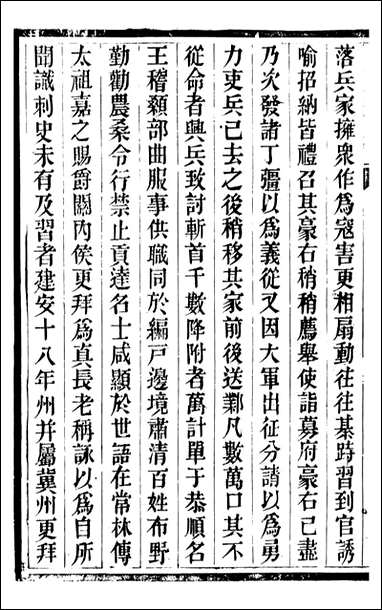 落兵家擁衆作爲寇害更相扇動往往棊跱習到官誘
喻招納皆禮召其豪右稍稍薦舉使詣募府豪右已盡
乃次發諸丁彊以爲義從又因大軍出征分請以爲勇
力吏兵已去之後稍移其家前後送鄴凡數萬口其不
從命者興兵致討斬首千數降附者萬計單于恭順名
王稽顙部曲服事供職同於編戶邊境肅清百姓布野
勤勸農桑令行禁止貢達名士咸顯於世語在常林傳
太祖嘉之賜爵關內侯更拜爲真長老稱詠以爲自所
聞識刺史未有及習者建安十八年州并屬冀州更拜